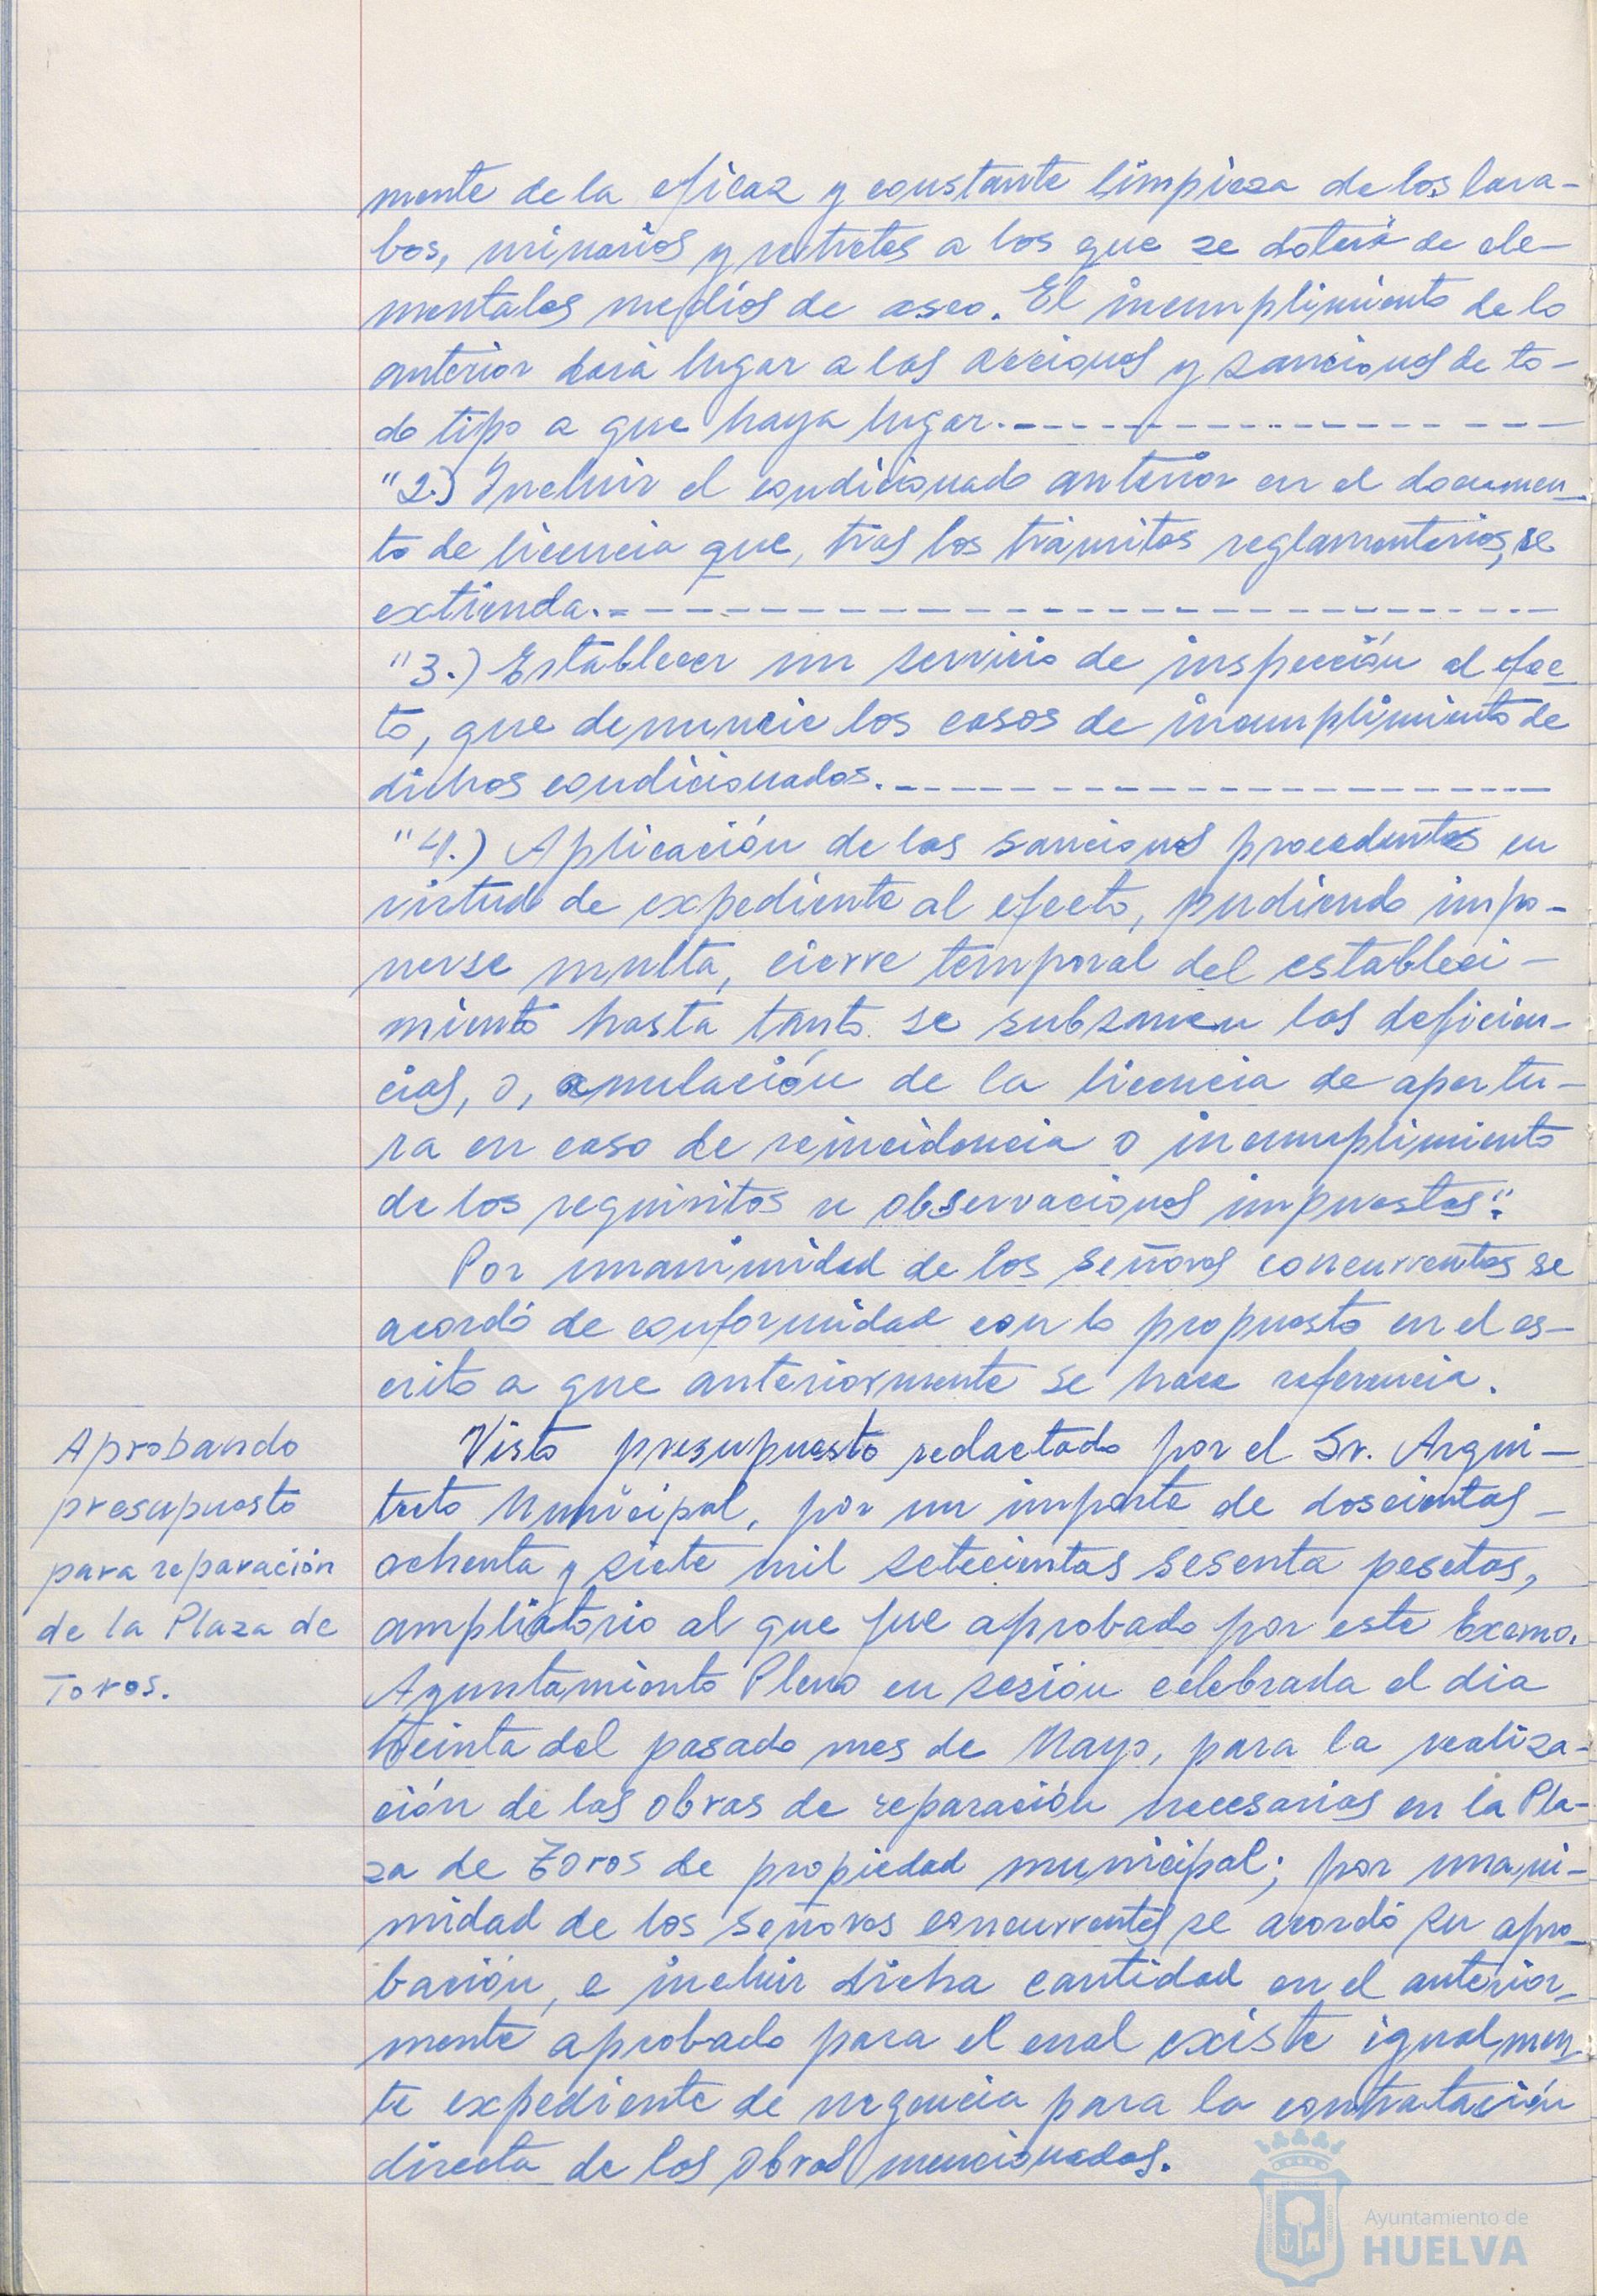 mente de la eficaz y constante limpieza de los lava-
bos, urinarios y retretes a los que se doterá de ele-
mentales medios de aseo. El incumplimiento de lo
anterior dará lugar a las acciones y sanciones de to-
do tipo a que haya lugar.---------------
"2.) Incluir el condicionado anterior en el documen-
to de licencia que, tras los trámites reglamentarios, se
extienda.-------------------
"3.) Establecer un servicio de inspección al efec-
to, que denuncie los casos de incumplimiento de
dichos condicionados.---------------
"4.) Aplicación de las sanciones procedentes en
virtud de expediente al efecto, pudiendo impo-
nerse multa, cierre temporal del estableci-
miento hasta tanto se subsanen las deficien-
cias, o, anulación de la licencia de apertu-
ra en caso de reincidencia o incumplimiento
de los requisitos u observaciones impuestas".
Por unanimidad de los señores concurrentes se
acordó de conformidad con lo propuesto en el es-
crito a que anteriormente se hace referencia.
Aprobando
presupuesto
para reparación
de la Plaza de
Toros.
Visto presupuesto redactado por el Sr. Arqui-
tecto Municipal, por un importe de doscientas
ochenta y siete mil setecientas sesenta pesetas,
ampliatorio al que fue aprobado por este Excmo.
Ayuntamiento Pleno en sesión celebrada el dia
treinta del pasado mes de Mayo, para la realiza-
ción de las obras de reparación necesarias en la Pla-
za de Toros de propiedad municipal; por unani-
midad de los señores concurrentes se acordó su apro-
bación, e incluir dicha cantidad en el anterior-
mente aprobado para el cual existe igualmen-
te expediente de urgencia para la contratación
directa de las obras mencionadas.
Ayuntamiento de
HUELVA